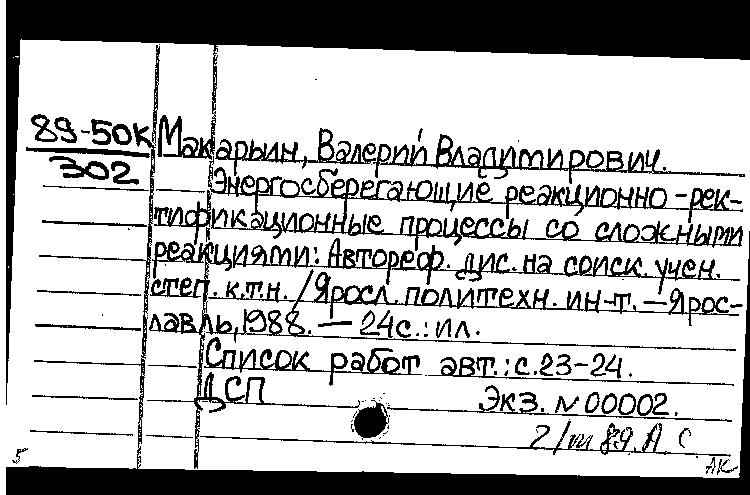 89-50К
302
Макарьин, Валерий Владимирович.
Энергосберегающие реакционно-рек-
тификационные процессы со сложными
реакциями: Автореф. дис. на соиск. учен.
степ. к.т.н. / Яросл. политехн. ин-т. — Ярос-
лавль, 1988. — 24с.: ил.
Список работ авт.: с.23-24.
ДСП
Экз. N 00002.
89. А. С
5
АК